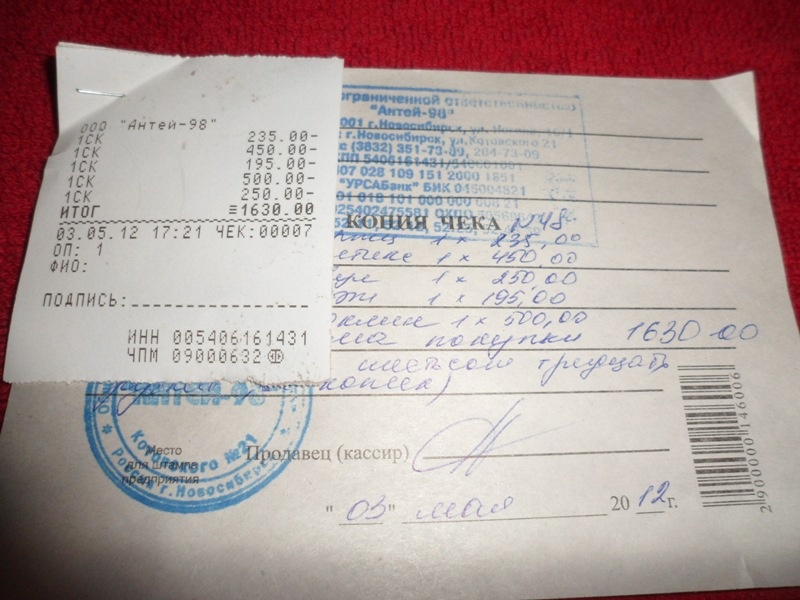 ООО "Антей-98"
1СК 235.00-
1СК 450.00-
1СК 195.00-
1СК 500.00-
1СК 250.00-
ИТОГ ≡1630.00
03.05.12 17:21 ЧЕК:00007
ОП: 1
ФИО:
ПОДПИСЬ:
ИНН 005406161431
ЧПМ 09000632
ограниченной ответственностью
"Антей-98"
г.Новосибирск, ул.
г.Новосибирск, ул.Котовского 21
(3832) 351-73-09, 264-73-09
КПП 5406161431/
028 109 151 2000 1851
"УРСАБанк" БИК 045004821
01 018 101 000 000 000 821
КОПИЯ ЧЕКА №48
1 х 235,00
1 х 450,00
1 х 250,00
1 х 195,00
1 х 500,00
покупки 1630-00
шестьсот тридцать
копеек)
Антей-98
Котовского №21
Россия г.Новосибирск
Место
для штампа
предприятия
Продавец (кассир)
"03" мая 2012г.
2900000146006